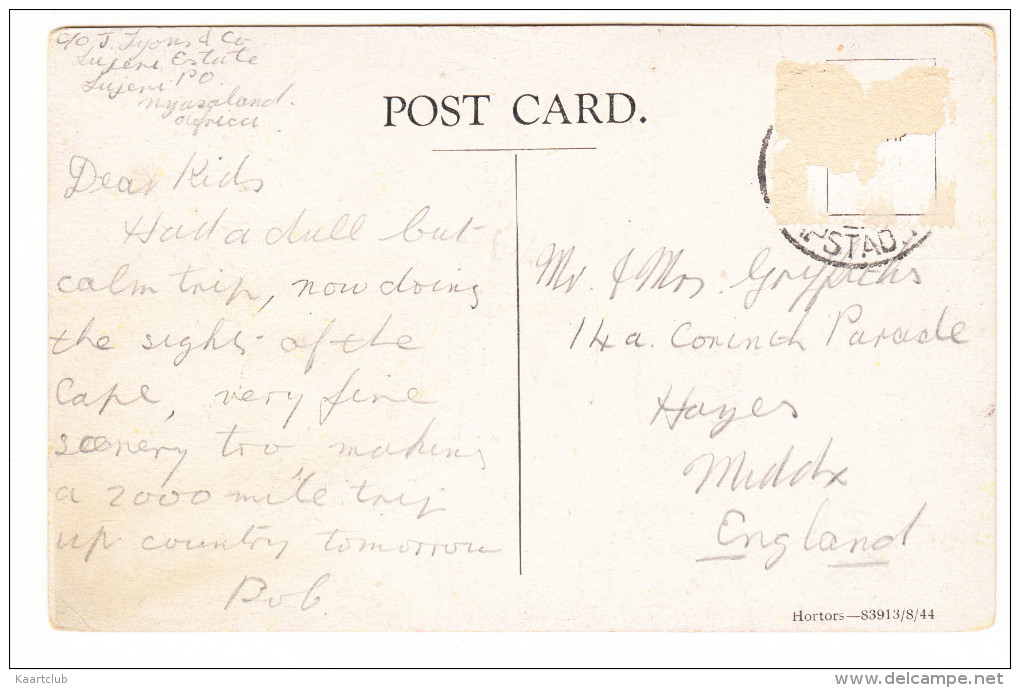 c/o J. Lyons & Co
Lujeri Estate
Lujeri PO.
Nyasaland.
Africa
POST CARD.
Dear Kids
Had a dull but
calm trip, now doing
the sights of the
Cape, very fine
scenery too, making
a 2000 mile trip
up country tomorrow
Bob.
PSTAD
Mr. & Mrs. Griffiths
14a. Corinth Parade
Hayes
Middx
England
Hortors—83913/8/44
Kaartclub
www.delcampe.net